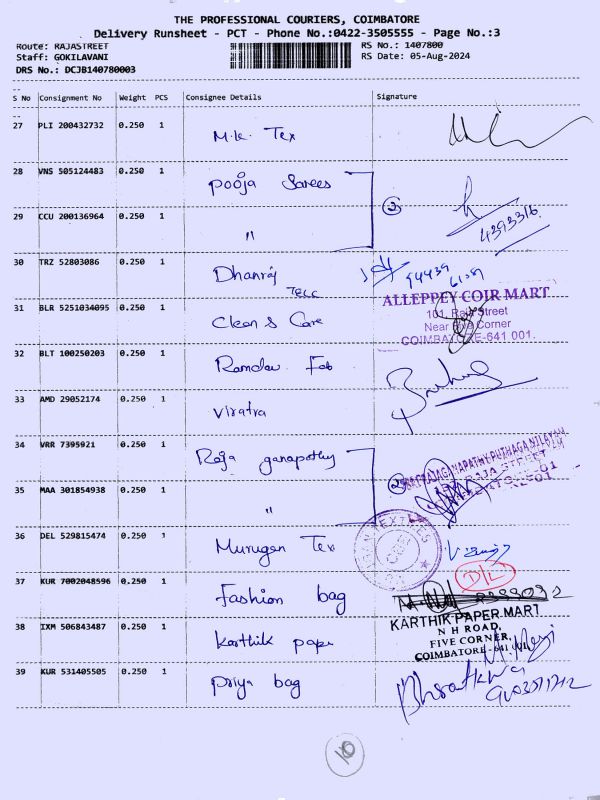 THE PROFESSIONAL COURIERS, COIMBATORE
Delivery Runsheet - PCT - Phone No.:0422-3505555 - Page No.:3
Route: RAJASTREET RS No.: 1407800
Staff: GOKILAVANI RS Date: 05-Aug-2024
DRS No.: DCJB140780003
S No Consignment No Weight PCS Consignee Details Signature
27 PLI 200432732 0.250 1 M.K. Tex
28 VNS 505124483 0.250 1 Pooja Sarees
29 CCU 200136964 0.250 1 "
30 TRZ 52803086 0.250 1 Dhanraj
31 BLR 5251034095 0.250 1 Clean & Care
ALLEPPEY COIR MART
101, Raja Street
Near Five Corner
COIMBATORE-641 001.
32 BLT 100250203 0.250 1 Ramdev Fab
33 AMD 29052174 0.250 1 Viratra
34 VRR 7395921 0.250 1 Raja ganapathy
35 MAA 301854938 0.250 1 "
36 DEL 529815474 0.250 1 Murugan Tex
37 KUR 7002048596 0.250 1 Fashion bag
D/L
38 IXM 506843487 0.250 1 Karthik pape
KARTHIK PAPER MART
N H ROAD,
FIVE CORNER,
COIMBATORE-641 001.
39 KUR 531405505 0.250 1 Priya bag